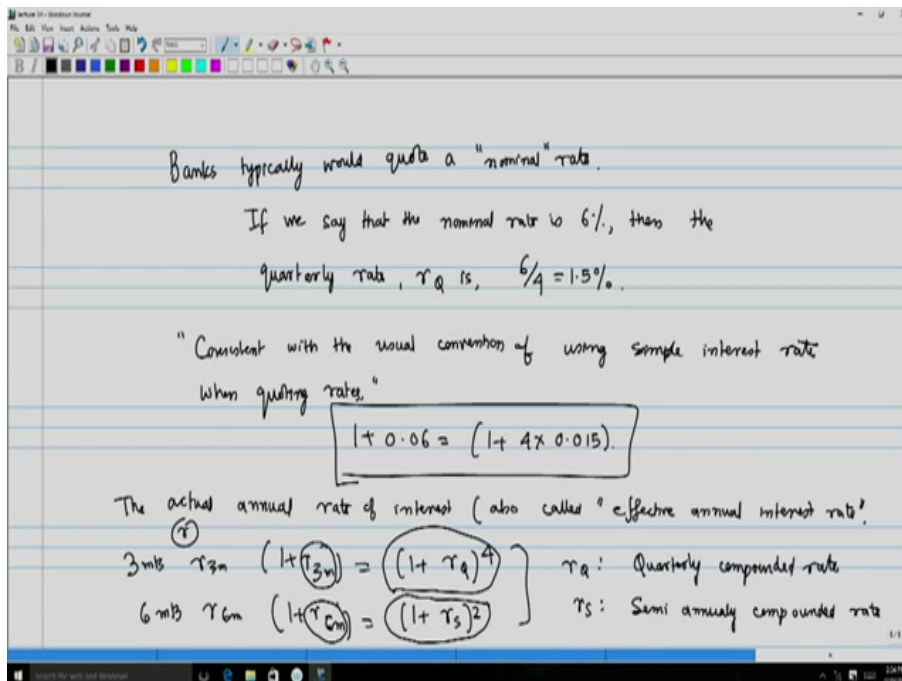 Lecture 01 - Windows Journal
File Edit View Insert Actions Tools Help
B I
Banks typically would quote a "nominal" rate.
If we say that the nominal rate is 6%, then the
quarterly rate, r_Q is, 6/4 = 1.5%.
"Consistent with the usual convention of using simple interest rate
when quoting rates."
1 + 0.06 = (1 + 4 × 0.015).
The actual annual rate of interest (also called "effective annual interest rate".
r
3 mts r_3m (1 + r_3m) = (1 + r_Q)^4 r_Q : Quarterly compounded rate
6 mts r_6m (1 + r_6m) = (1 + r_s)^2 r_s : Semi annualy compounded rate
1/1
Search the web and Windows